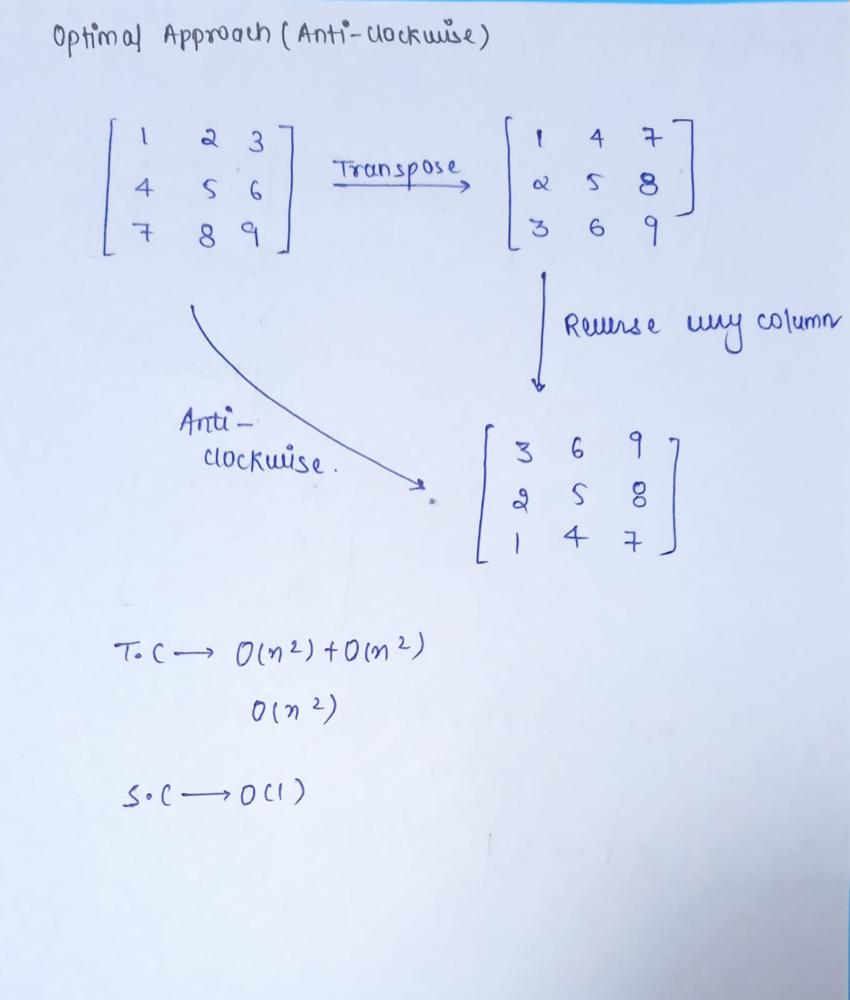 Optimal Approach (Anti-clockwise)
1 2 3
4 5 6
7 8 9
Transpose
1 4 7
2 5 8
3 6 9
Reverse every column
Anti-
clockwise.
3 6 9
2 5 8
1 4 7
T.C → O(n²) + O(n²)
O(n²)
S.C → O(1)